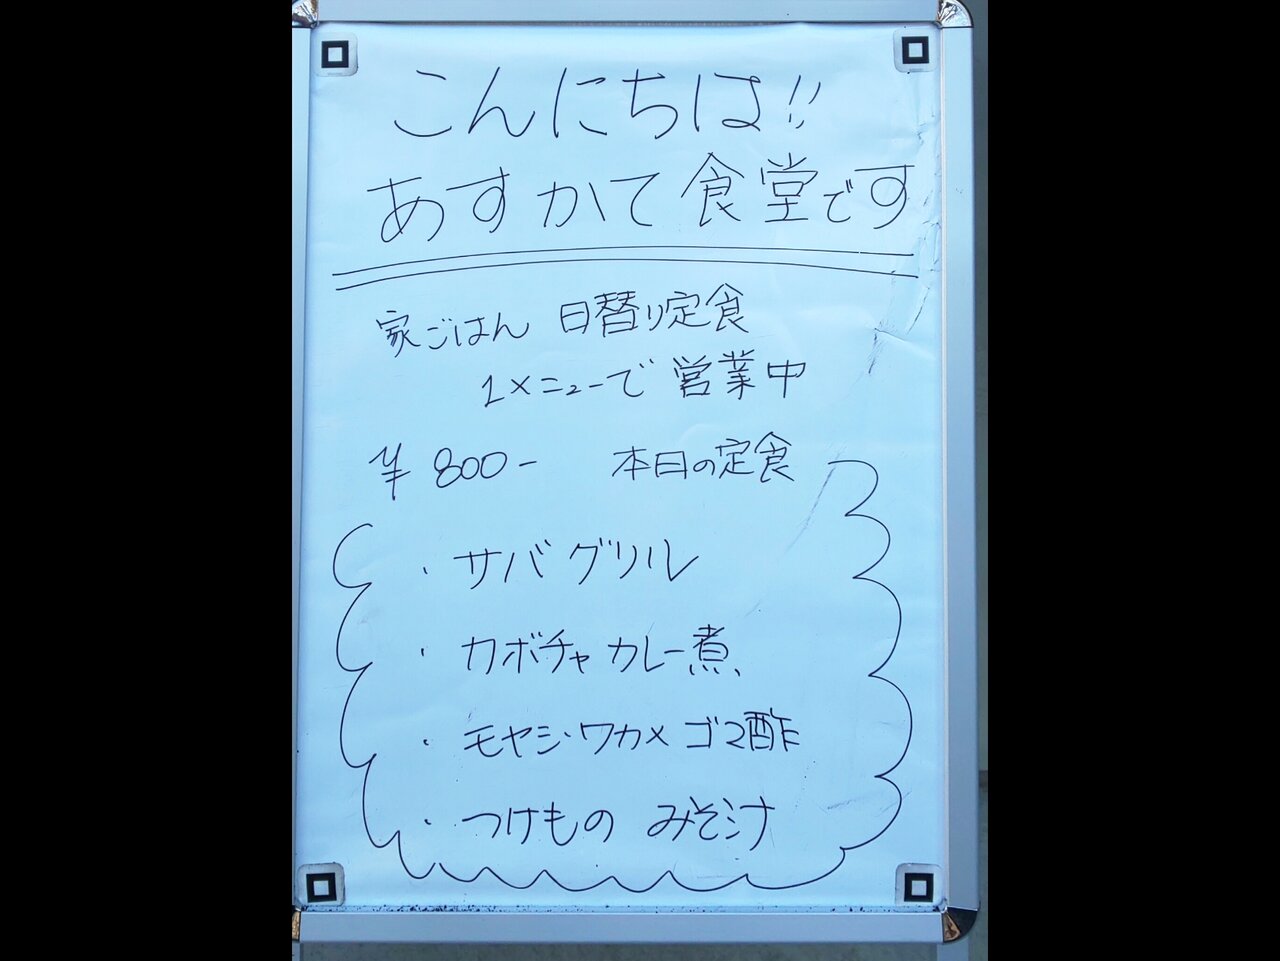 こんにちは!!
あすかて食堂です
家ごはん 日替り定食
1メニューで営業中
¥800- 本日の定食
・サバグリル
・カボチャカレー煮
・モヤシ・ワカメゴマ酢
・つけもの みそ汁